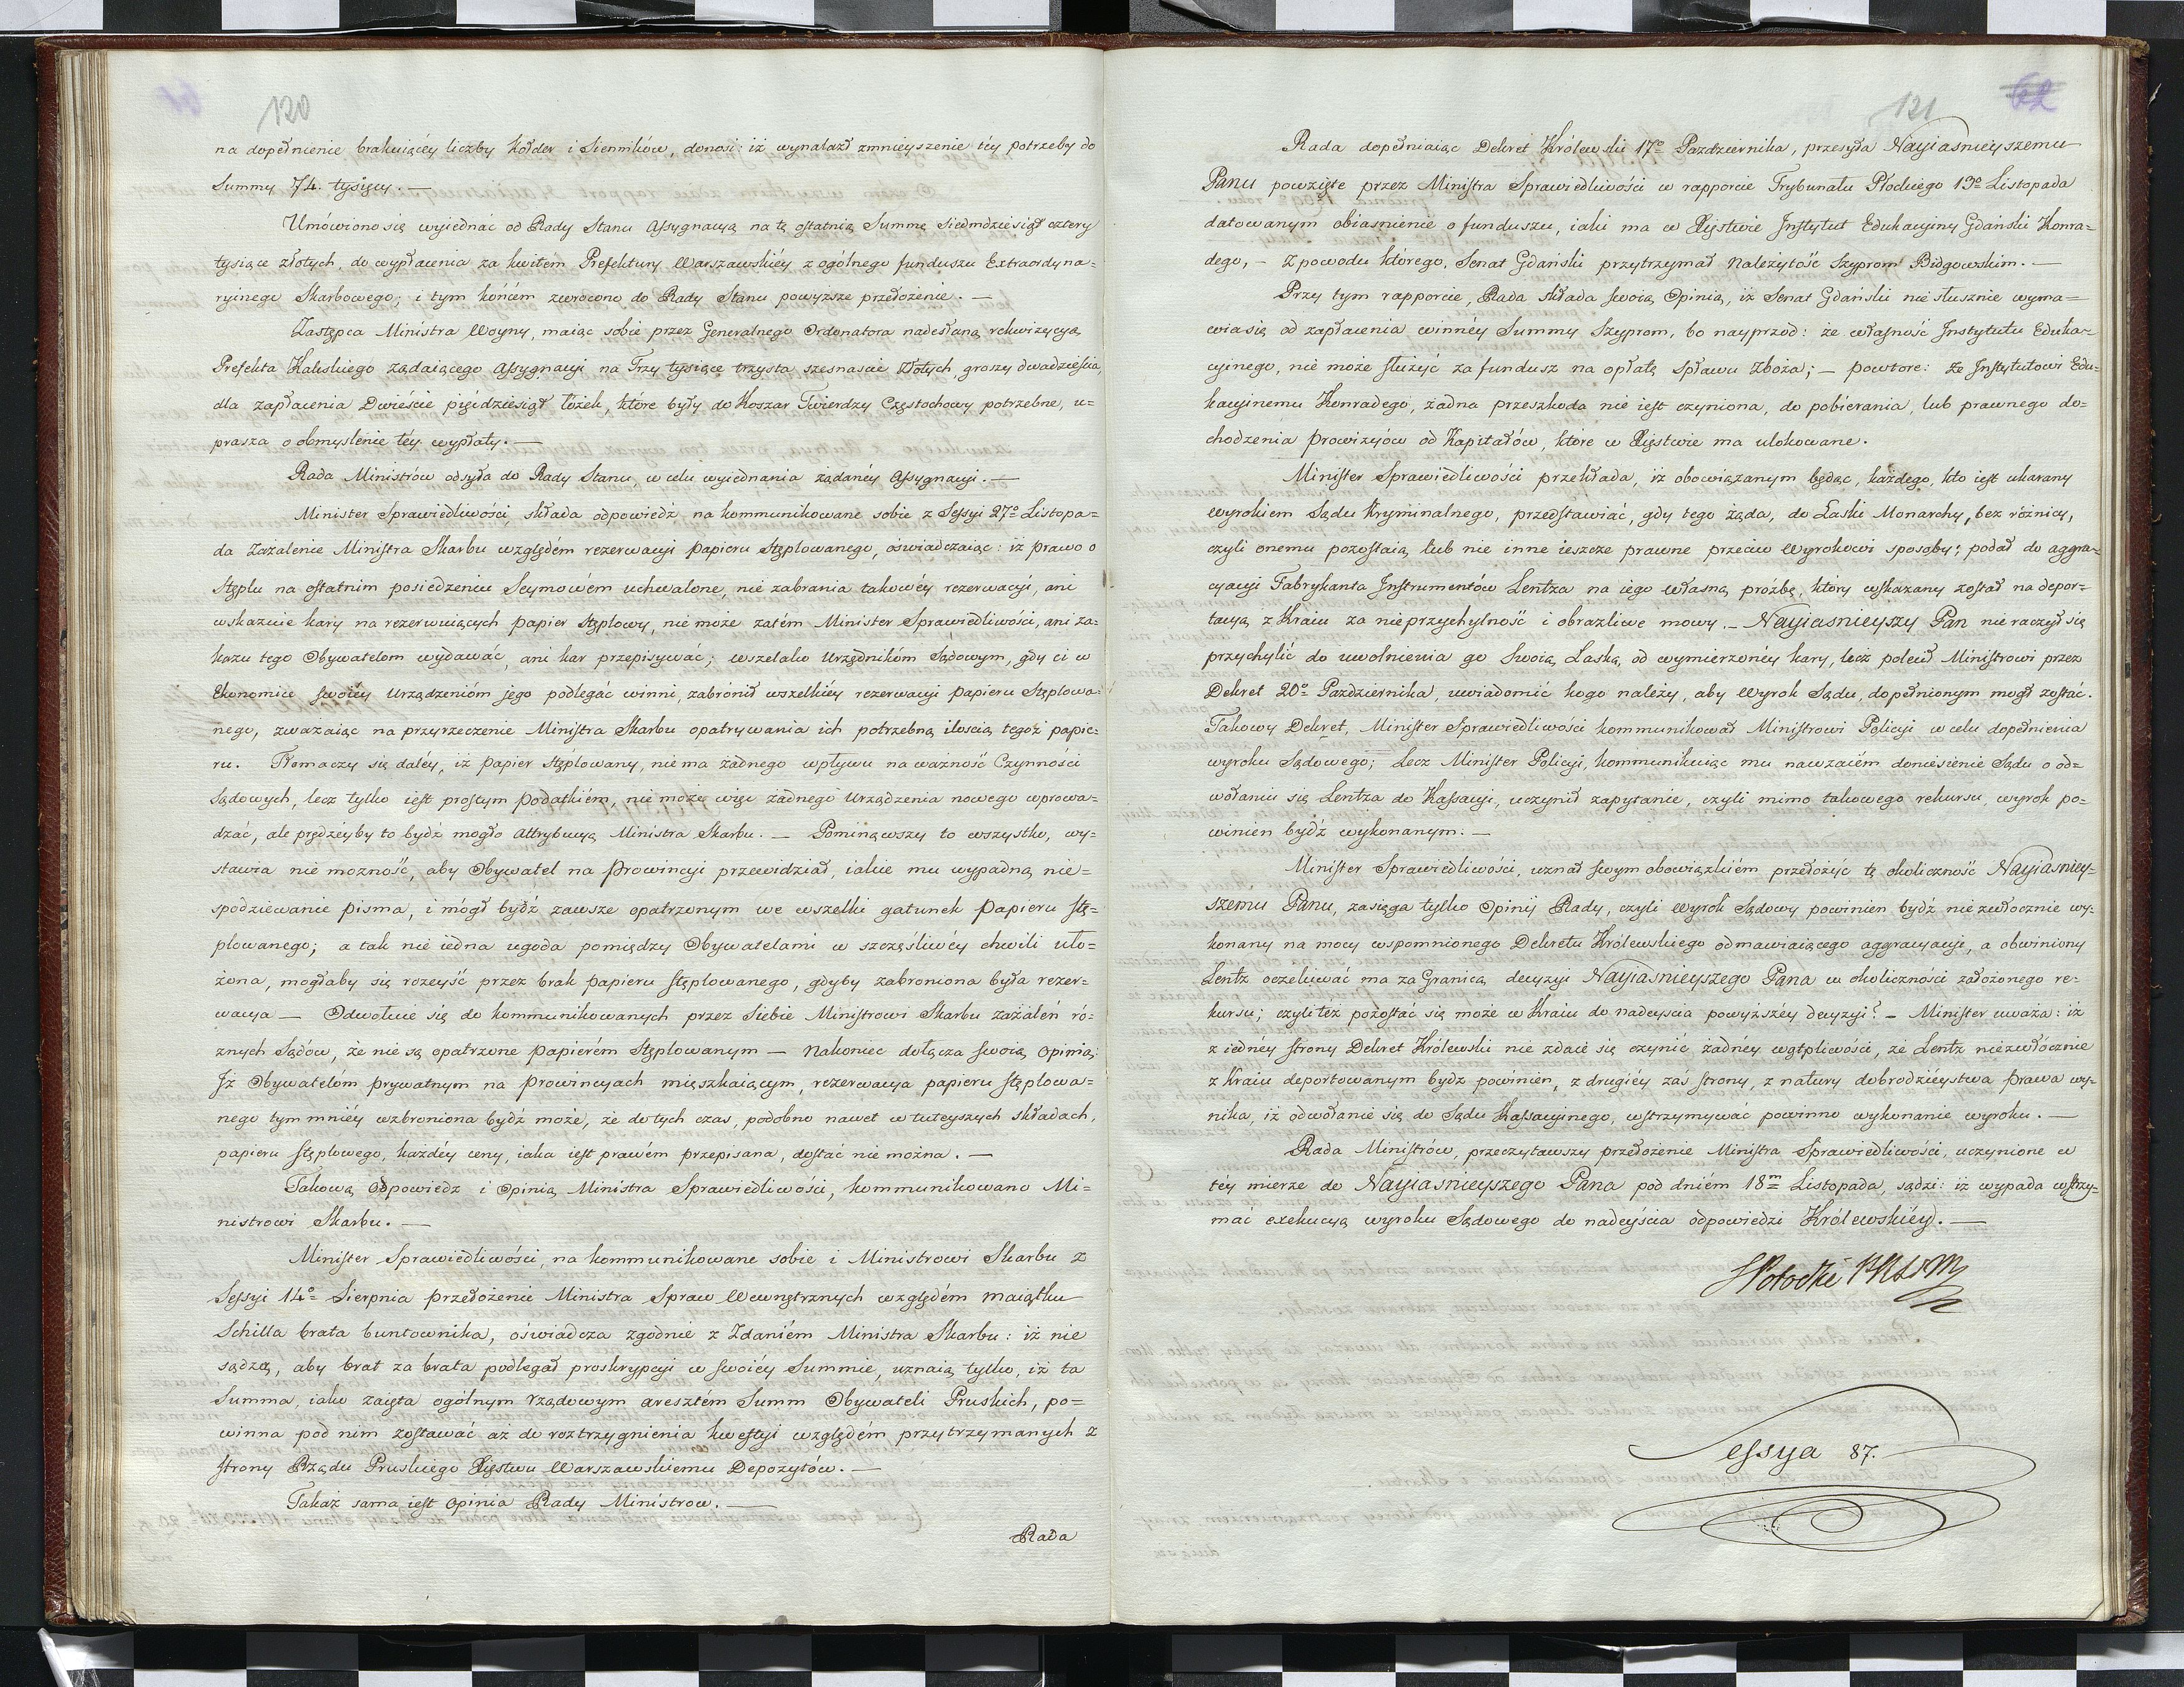 120
na dopełnienie brakuiącéy liczby kołder i Sienników, donosi: iż wynalazł zmnieyszenie téy potrzeby do
Summy 74. tysięcy. —
Umówiono się wyiednać od Rady Stanu Assygnacyą na tę ostatnią Summę Siedmdziesiąt cztery
tysiące złotych, do wypłacenia za kwitem Prefektury Warszawskiéy z ogólnego funduszu Extraordyna=
ryinego Skarbowego; i tym końcem zwrócono do Rady Stanu powyższe przełożenie. —
Zastępca Ministra Woyny, maiąc sobie przez Generalnego Ordonatora nadesłaną rekwizycyą
Prefekta Kaliskiego żądaiącego Assygnacyi na Trzy tysiące trzysta szesnaście Złotych, groszy dwadzieścia,
dla zapłacenia Dwieście pięidziesiąt łóżek, które były do Koszar Twierdzy Częstochowy potrzebne, u=
prasza o obmyślenie téy wypłaty. —
Rada Ministrów odsyła do Rady Stanu, w celu wyiednania żądanéy Assygnacyi. —
Minister Sprawiedliwości, składa odpowiedź na kommunikowane sobie z Sessyi 27º Listopa=
da Zażalenie Ministra Skarbu względém rezerwacyi papieru Stęplowanego, oświadczaiąc: iż prawo o
Stęplu na ostatnim posiedzeniu Seymowém uchwalone, nie zabrania takowéy rezerwacyi, ani
wskazuie kary na rezerwuiących papier Stęplowy, nie może zatém Minister Sprawiedliwości, ani za=
kazu tego Obywatelom wydawać, ani kar przepisywać; wszelako Urzędnikóm Sądowym, gdy ci w
Ekonomice swoiéy Urządzenióm jego podlegać winni, zabronił wszelkiéy rezerwacyi papieru Stęplowa=
nego, zważaiąc na przyrzeczenie Ministra Skarbu opatrywania ich potrzebną ilością tegoż papie=
ru. Tłomaczy się daléy, iż papier Stęplowany, nie ma żadnego wpływu na ważność Czynności
Sądowych, lecz tylko iest prostym podatkiém, nie może więc żadnego Urządzenia nowego wprowa=
dzać, ale prędzéyby to bydź mogło Attrybucyą Ministra Skarbu. — Pominąwszy to wszystko, wy=
stawia nie możność, aby Obywatel na Prowincyi przewidział, iakie mu wypadną nie=
spodziewanie pisma, i mógł bydź zawsze opatrzonym we wszelki gatunek Papieru Stę=
plowanego; a tak nie iedna ugoda pomiędzy Obywatelami w szczęśliwéy chwili uło=
żona, mogłaby się rozeyść przez brak papieru stęplowanego, gdyby zabroniona była rezer=
wacya — Odwołuie się do kommunikowanych przez siebie Ministrowi Skarbu zażaleń ro=
znych Sądów, że nie są opatrzone papierém Stęplowanym — Nakoniec dołącza swoią Opinią:
Iż Obywatelóm prywatnym na prowincyach mięszkaiącym, rezerwacya papieru stęplowa=
nego tym mniéy wzbroniona bydź może, że do tych czas, podobno nawet w tuteyszych składach,
papieru stęplowego, każdéy ceny, iaka iest prawém przepisana, dostać nie można. —
Takową Odpowiedz i Opinią Ministra Sprawiedliwości, kommunikowano Mi=
nistrowi Skarbu. —
Minister Sprawiedliwości, na kommunikowane sobie i Ministrowi Skarbu z
Sessyi 14º Sierpnia przełożenie Ministra Spraw Wewnętrznych względém maiątku
Schilla brata buntownika, oświadcza zgodnie z Zdaniém Ministra Skarbu: iż nie
sądzą, aby brat za brata podlegał proskrypcyi w swoiéy Summie, uznaią tylko, iż ta
Summa, iako zaięta ogólnym rządowym aresztém Summ Obywateli Pruskich, po=
winna pod nim zostawać aż do roztrzygnienia kwestyi względém przytrzymanych z
strony Rządu Pruskiego Xięstwu Warszawskiemu Depozytów. —
Takaż sama iest Opinia Rady Ministrow. —
Rada
121
62
Rada dopełniaiąc Dekret Królewski 17º Pazdziernika, przesyła Nayiasnieyszemu
Panu powzięte przez Ministra Sprawiedliwości w rapporcie Trybunału Płockiego 13º Listopada
datowanym obiasnienie o funduszu, iaki ma w Xięstwie Instytut Edukacyiny Gdański Konra=
dego, — z powodu którego, Senat Gdański przytrzymał Należytość Szyprom Bidgowskim. —
Przy tym rapporcie, Rada składa swoią Opinią, iż Senat Gdański nie słusznie wyma=
wia się od zapłacenia winnéy Summy Szyprom, bo nayprzód: że własność Instytutu Eduka=
cyinego, nie może służyć za fundusz na opłatę spławu Zboża; — powtóre: że Instytutowi Edu=
kacyinemu Konradego, żadna przeszkoda nie iest czyniona, do pobiérania, lub prawnego do=
chodzenia prowizyiów od Kapitałów, które w Xięstwie ma ulokowane.
Minister Sprawiedliwości przekłada, iż obowiązanym będąc, każdego, kto iest ukarany
wyrokiem Sądu Kryminalnego, przedstawiać, gdy tego żąda, do Łaski Monarchy, bez różnicy,
czyli onemu pozostaią lub nie inne ieszcze prawne przeciw Wyrokowi sposoby; podał do aggra=
cyacyi Fabrykanta Instrumentów Lentza na iego własną próźbę, który wskazany został na depor=
tacyą z Kraiu za nieprzychylność i obrazliwe mowy. — Nayiasnieyszy Pan nie raczył się
przychylić do uwolnienia go Swoią Łaską, od wymierzonéy kary, lecz polecił Ministrowi przez
Dekret 20º Pazdziernika, uwiadomić kogo należy, aby Wyrok Sądu, dopełnionym mógł zostać.
Takowy Dekret, Minister Sprawiedliwości kommunikował Ministrowi Policyi w celu dopełnienia
wyroku Sądowego; Lecz Minister Policyi, kommunikuiąc mu nawzaiém doniesienie Sądu o od=
wołaniu się Lentza do Kassacyi, uczynił zapytanie, czyli mimo takowego rekursu, wyrok po=
winien bydź wykonanym. —
Minister Sprawiedliwości, uznał swym obowiązkiém przełożyć tę okoliczność Nayiasniey=
szemu Panu, zasięga tylko Opinij Rady, czyli Wyrok Sądowy powinien bydź niezwłocznie wy=
konany na mocy wspomnionego Dekretu Królewskiego odmawiaiącego aggracyacyi, a obwiniony
Lentz oczekiwać ma za Granicą decyzyi Nayiasnieyszego Pana w okoliczności założonego re=
kursu; czyli też pozostać się może w Kraiu do nadeyscia powyższéy decyzyi? — Minister uważa: iż
z iednéy strony Dekret Królewski nie zdaie się czynić żadnéy wątpliwości, że Lentz niezwłócznie
z Kraiu deportowanym bydz powinien, z drugiéy zaś strony, z natury dobrodzieystwa prawa wy=
nika, iż odwołanie się do Sądu Kassacyinego, wstrzymywać powinno wykonanie wyroku. —
Rada Ministrów, przeczytawszy przełożenie Ministra Sprawiedliwości, uczynione w
téy mierze do Nayiasnieyszego Pana pod dniém 18m Listopada, sądzi: iż wypada wstrzy=
mać exekucyą wyroku Sądowego do nadeyścia odpowiedzi Królewskiéy. —
Potocki
Sessya 87.